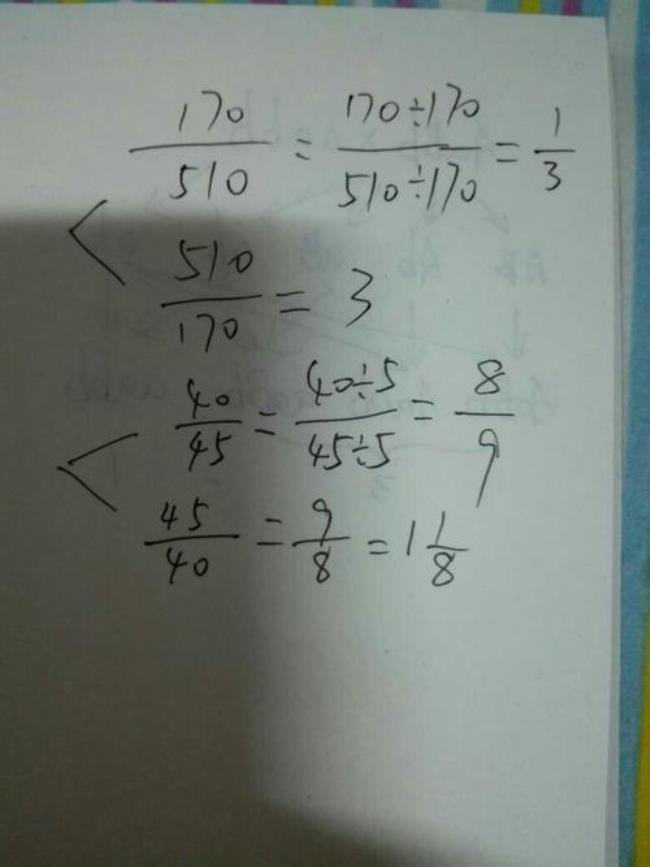 170/510 = 170÷170/510÷170 = 1/3
510/170 = 3
40/45 = 40÷5/45÷5 = 8/9
45/40 = 9/8 = 1 1/8